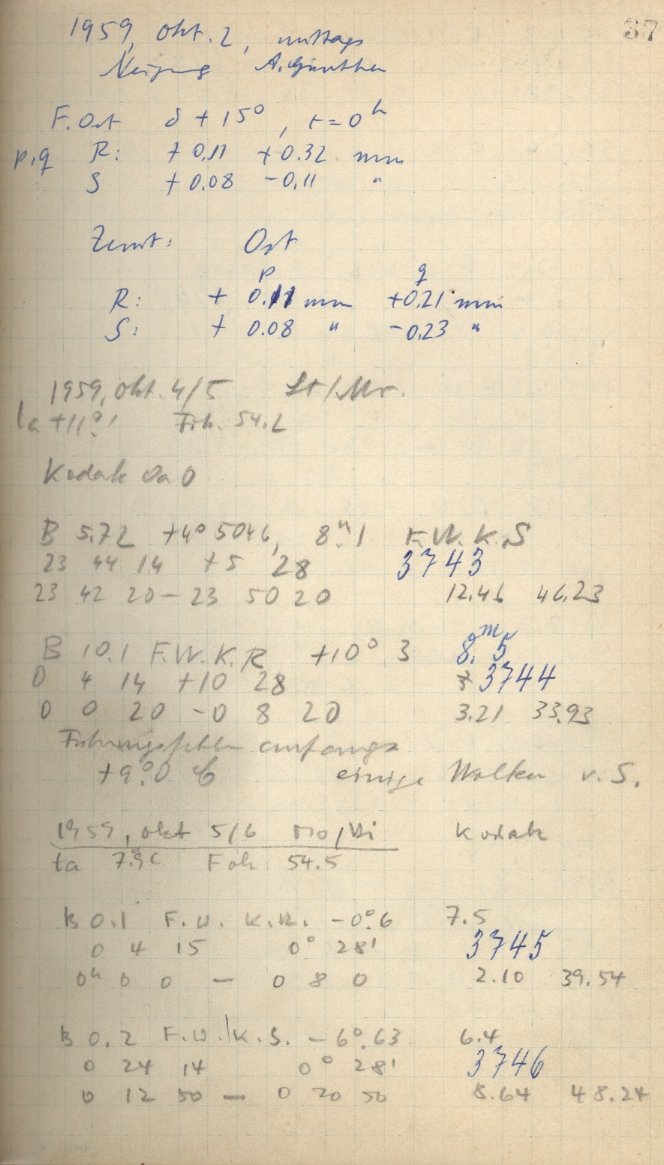 37
1959, Okt. 2, mittags
Neigung A. Günther
F. Ost δ + 15°, t = 0ʰ
p,q R: + 0.11 + 0.32 mm
S + 0.08 - 0.11 "
Zenit: Ost
p q
R: + 0.11 mm + 0.21 mm
S: + 0.08 " - 0.23 "
1959, Okt. 4/5 So/Mo.
ta +11°.1 Fok. 54.2
Kodak Oa O
B 5.72 +4° 5046, 8ᵐ.1 F.W. K.S
23 44 14 +5 28 3743
23 42 20 - 23 50 20 12.46 46.23
B 10.1 F.W. K.R +10° 3 8ᵐ.5
0 4 14 +10 28 3744
0 0 20 - 0 8 20 3.21 33.93
Führungsfehler anfangs
+9°.0 C einige Wolken v. S.
1959, Okt 5/6 Mo/Di Kodak
ta 7.9 C Fok 54.5
B 0.1 F.W. K.R. -0°6 7.5
0 4 15 0° 28' 3745
0ʰ 0 0 - 0 8 0 2.10 39.54
B 0.2 F.W. K.S. - 6°.63 6.4
0 24 14 0° 28' 3746
0 12 50 - 0 20 50 8.64 48.24